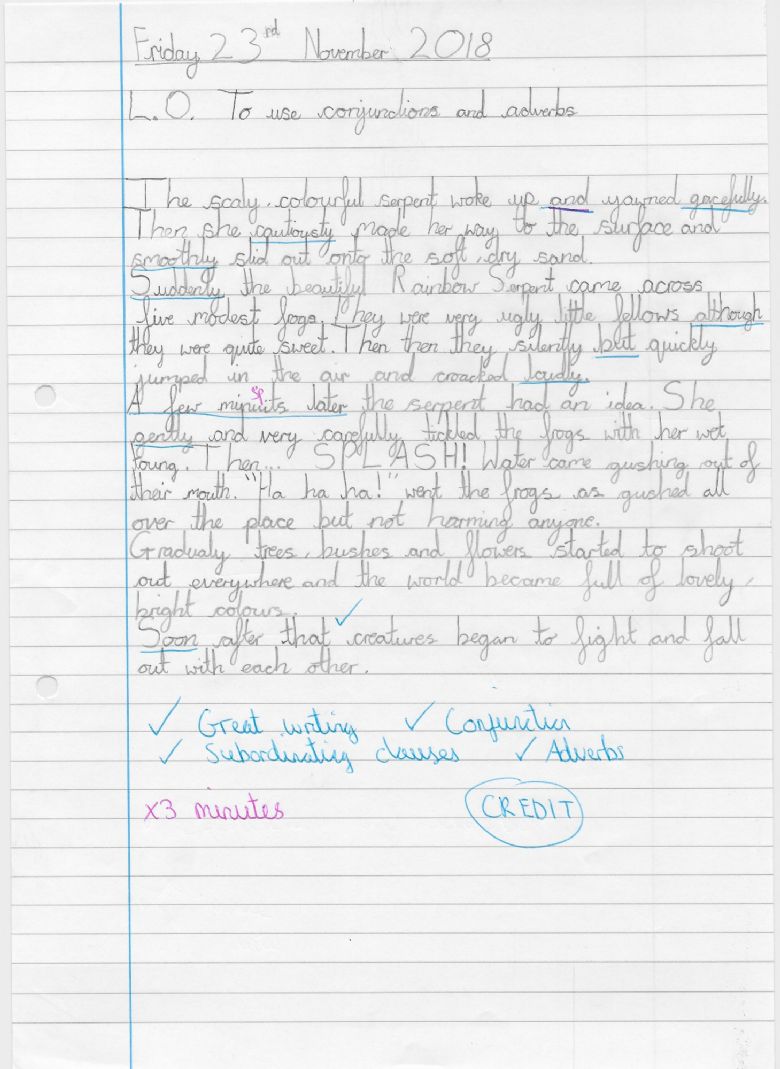 Friday 23rd November 2018
L.O. To use conjunctions and adverbs
The scaly, colourful serpent woke up and yawned gacefully.
Then she cautiously made her way to the surface and
smoothly slid out onto the soft, dry sand.
Suddenly the beautiful Rainbow Serpent came across
five modest frogs. They were very ugly little fellows although
they were quite sweet. Then then they silently but quickly
jumped in the air and croacked loudly.
sp
A few minuits later the serpent had an idea. She
gently and very carefully tickled the frogs with her wet
toung. Then... SPLASH! Water came gushing out of
their mouth. "Ha ha ha!" went the frogs as gushed all
over the place but not harming anyone.
Gradualy trees, bushes and flowers started to shoot
out everywhere and the world became full of lovely,
bright colours.
Soon after that creatures began to fight and fall
out with each other.
✓ Great writing ✓ Conjunction
✓ Subordinating clauses ✓ Adverbs
x3 minutes CREDIT